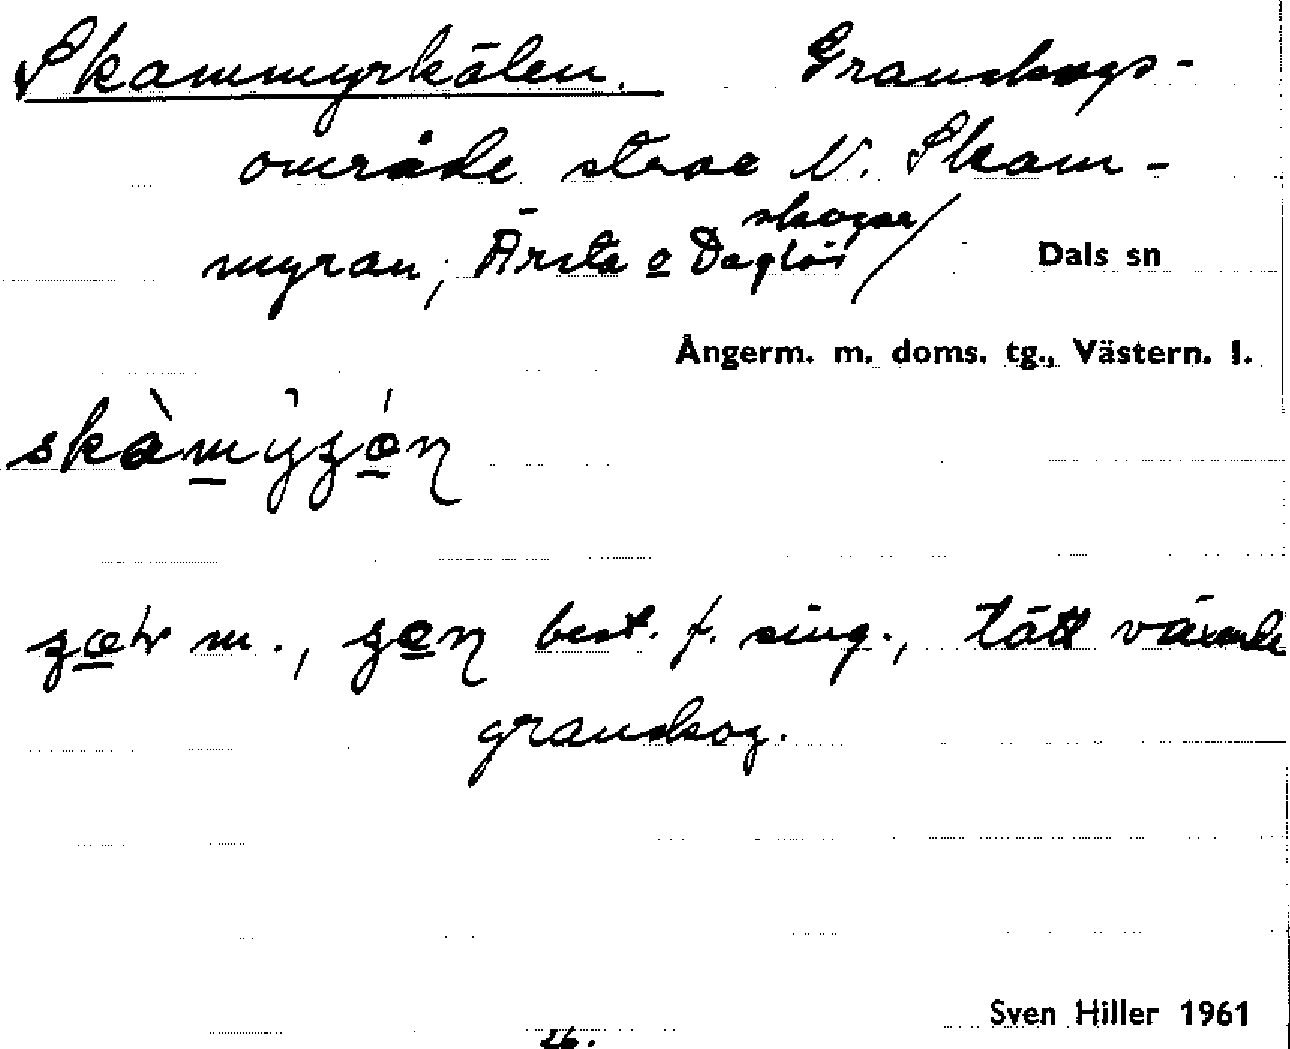 Skammyrkälen. Granskogs-
område strax N. Skam-
myran, Ärsta o Daglös skogar/ Dals sn
Ångerm. m. doms. tg., Västern. l.
m., best. f. sing., tätt växande
granskog.
Sven Hiller 1961
26.